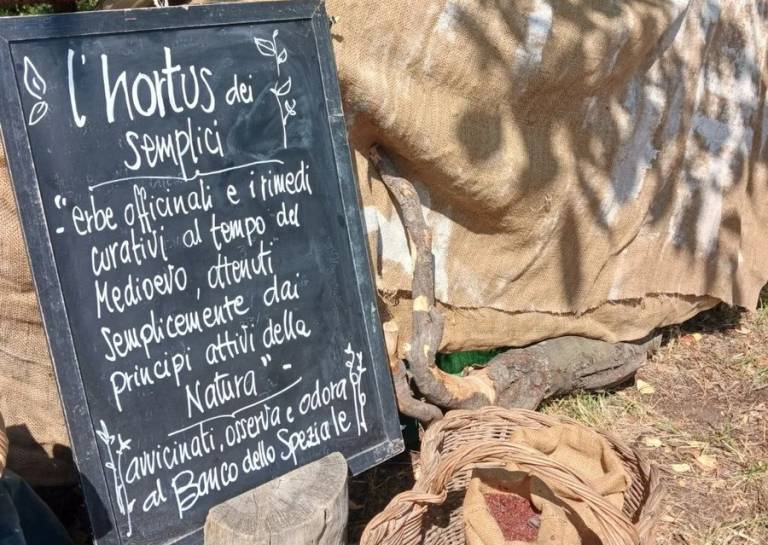 l'hortus dei
semplici
"erbe officinali e i rimedi
curativi al tempo del
Medioevo, ottenuti
semplicemente dai
principi attivi della
Natura"
avvicinati, osserva e odora
al Banco dello Speziale